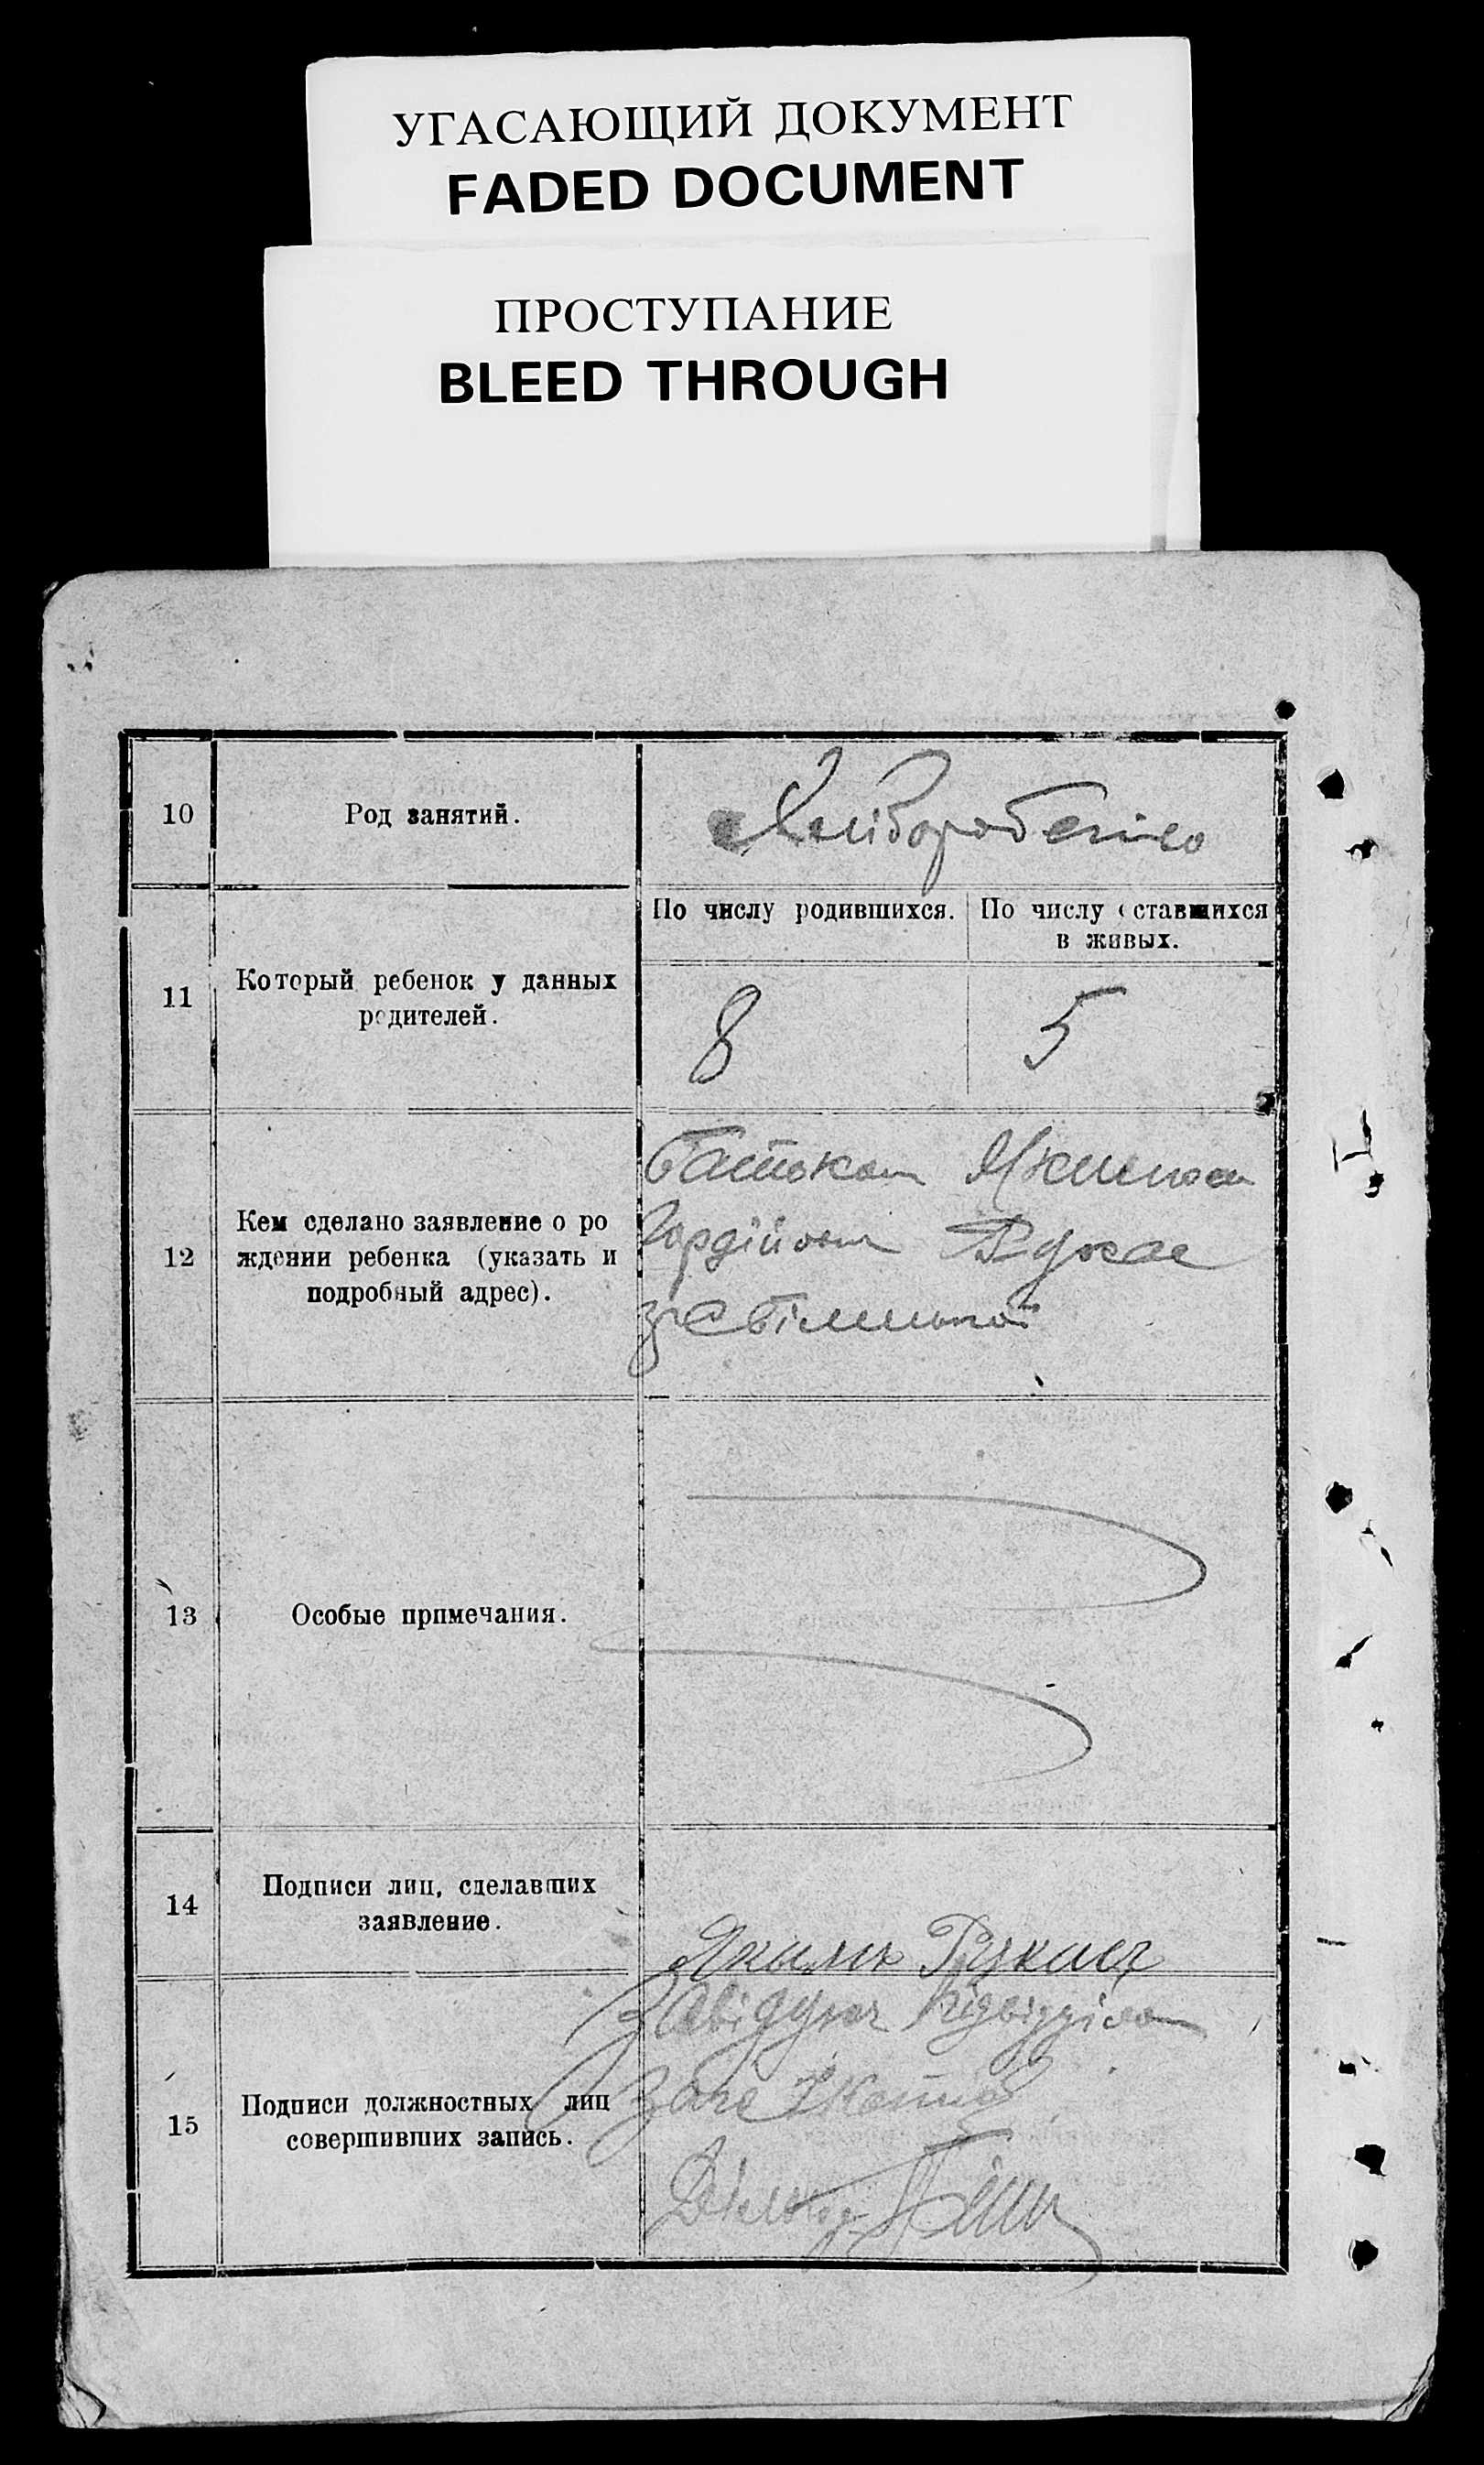 УГАСАЮЩИЙ ДОКУМЕНТ
FADED DOCUMENT
ПРОСТУПАНИЕ
BLEED THROUGH
10
Род занятий.
Хліборобство
11
Который ребенок у данных
родителей.
По числу родившихся.
По числу оставшихся
в живых.
8
5
12
Кем сделано заявление о ро
ждении ребенка (указать и
подробный адрес).
Батьком Якимом
Гордійовим
з с
13
Особые примечания.
14
Подписи лиц, сделавших
заявление.
Якимъ
15
Подписи должностных лиц
совершивших запись.
Завідуюч Підвідділом
Діловод